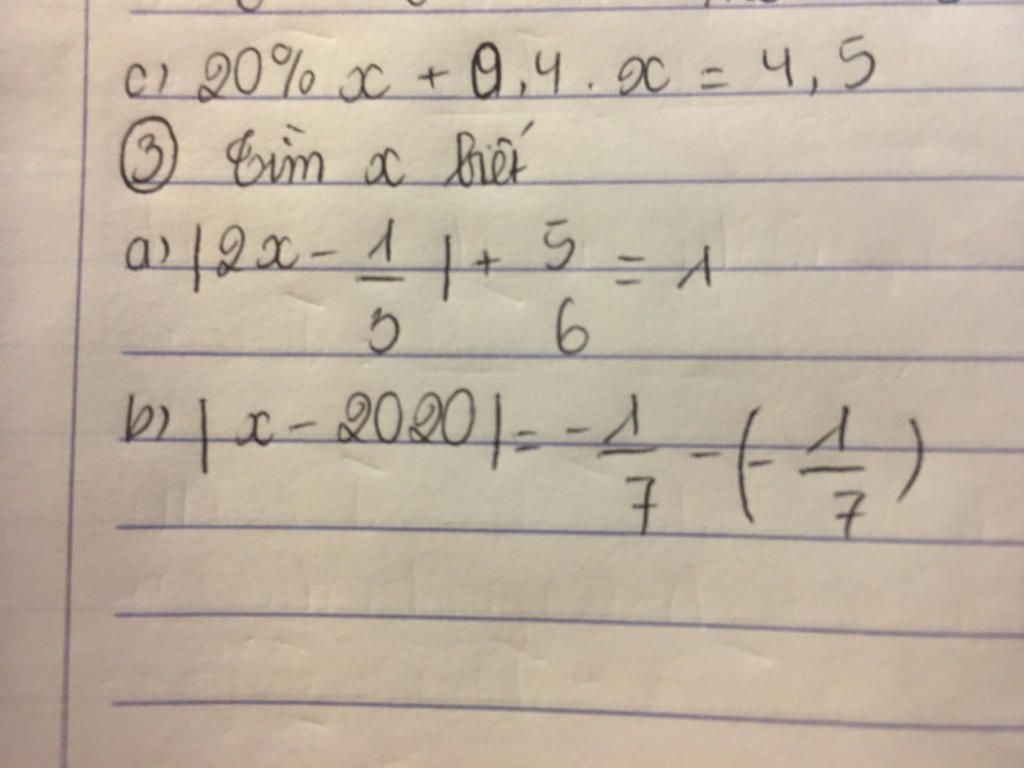 c) 20% x + 0,4 . x = 4,5
③ tìm x biết
a) |2x - 1/3| + 5/6 = 1
b) |x - 2020| = -1/7 - (-1/7)